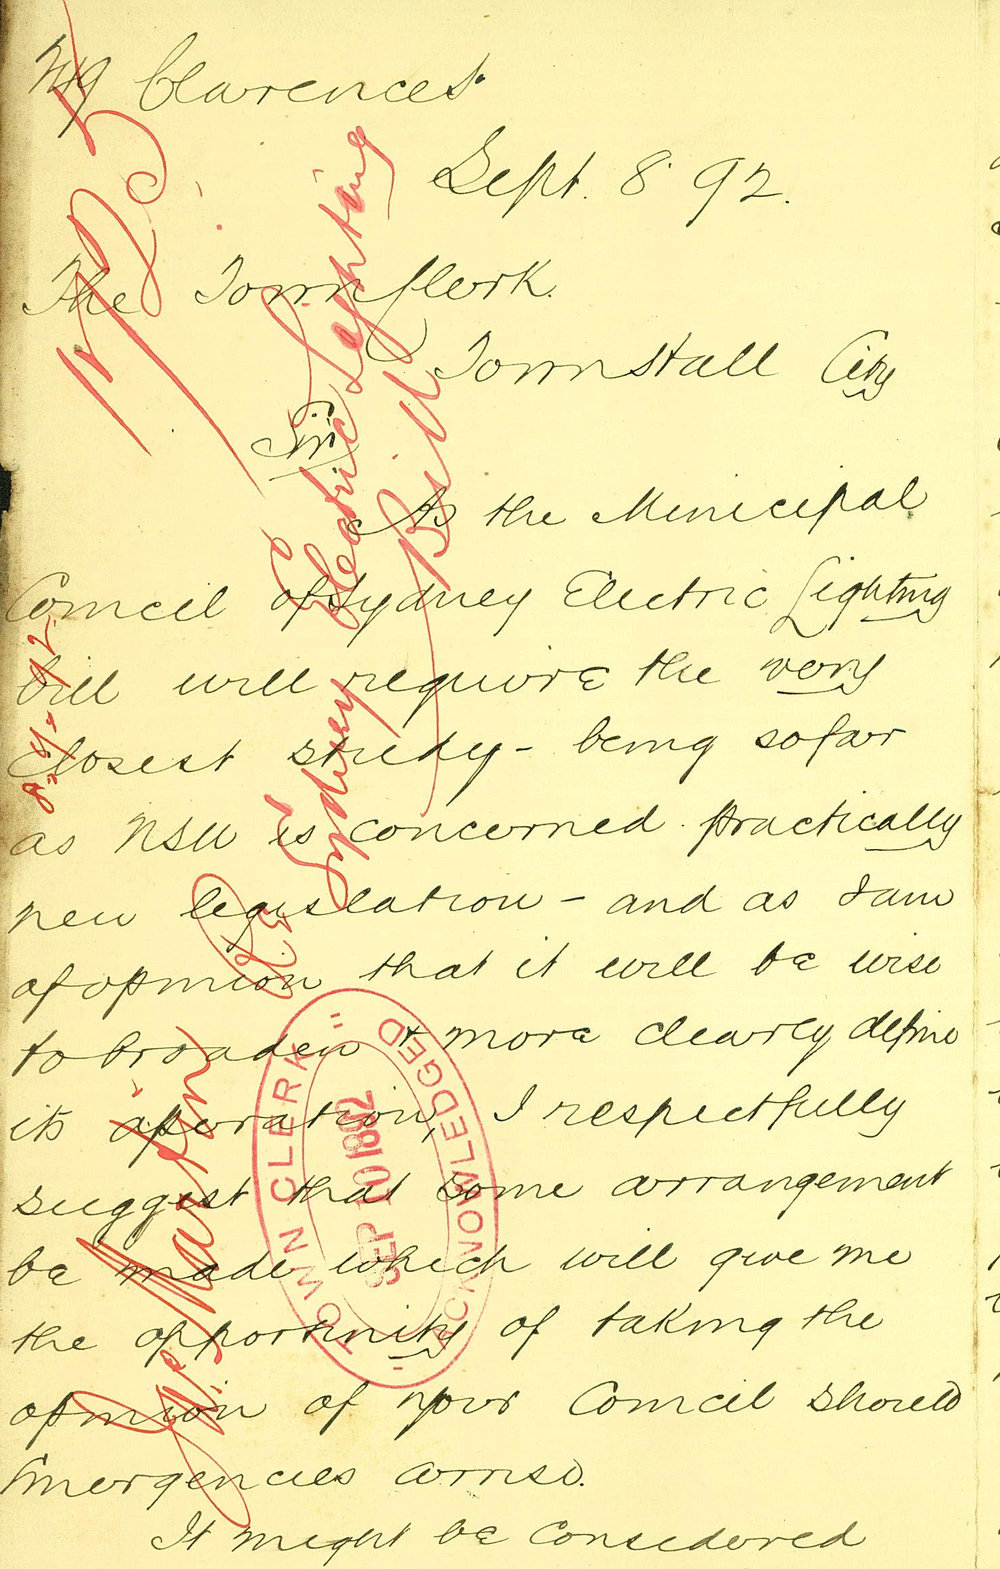 Clarence St
Sept. 8 92.
The Town Clerk.
Town Hall City
Sir
As the Municipal
Council of Sydney Electric Lighting
bill will require the very
closest study – being so far
as NSW is concerned practically
new legislation – and as I am
of opinion that it will be wise
to broaden & more clearly define
its operation, I respectfully
suggest that some arrangement
be made which will give me
the opportunity of taking the
opinion of your Council should
Emergencies arrise.
It might be Considered
Re Sydney Electric Lighting
Bill
TOWN CLERK
SEP 10 1892
"ACKNOWLEDGED"